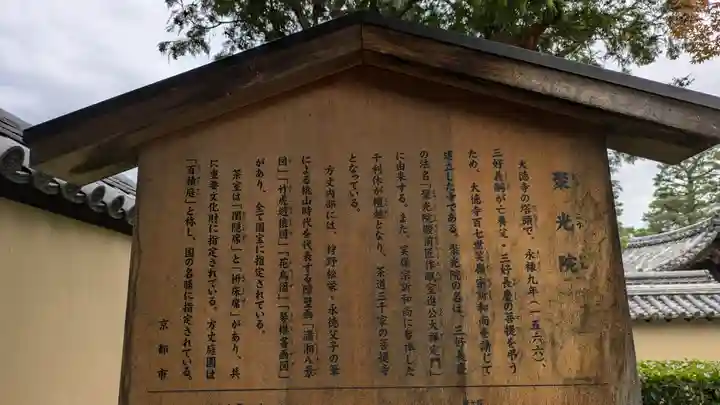 聚光院
大徳寺の塔頭で、永禄九年（一五六六）、
三好義継が亡養父・三好長慶の菩提を弔う
ため、大徳寺百七世笑嶺宗訢和尚を請じて
建立した寺である。聚光院の名は、三好長慶
の法名「聚光院殿前匠作眠室進公大禅定門」
に由来する。また、笑嶺宗訢和尚に参禅した
千利休が檀越となり、茶道三千家の菩提寺
となっている。
方丈内部には、狩野松栄・永徳父子の筆
による桃山時代を代表する障壁画「瀟湘八景
図」「竹虎遊猿図」「花鳥図」「琴棋書画図」
があり、全て国宝に指定されている。
茶室は「閑隠席」と「枡床席」があり、共
に重要文化財に指定されている。方丈庭園は
「百積庭」と称し、国の名勝に指定されている。
京都市